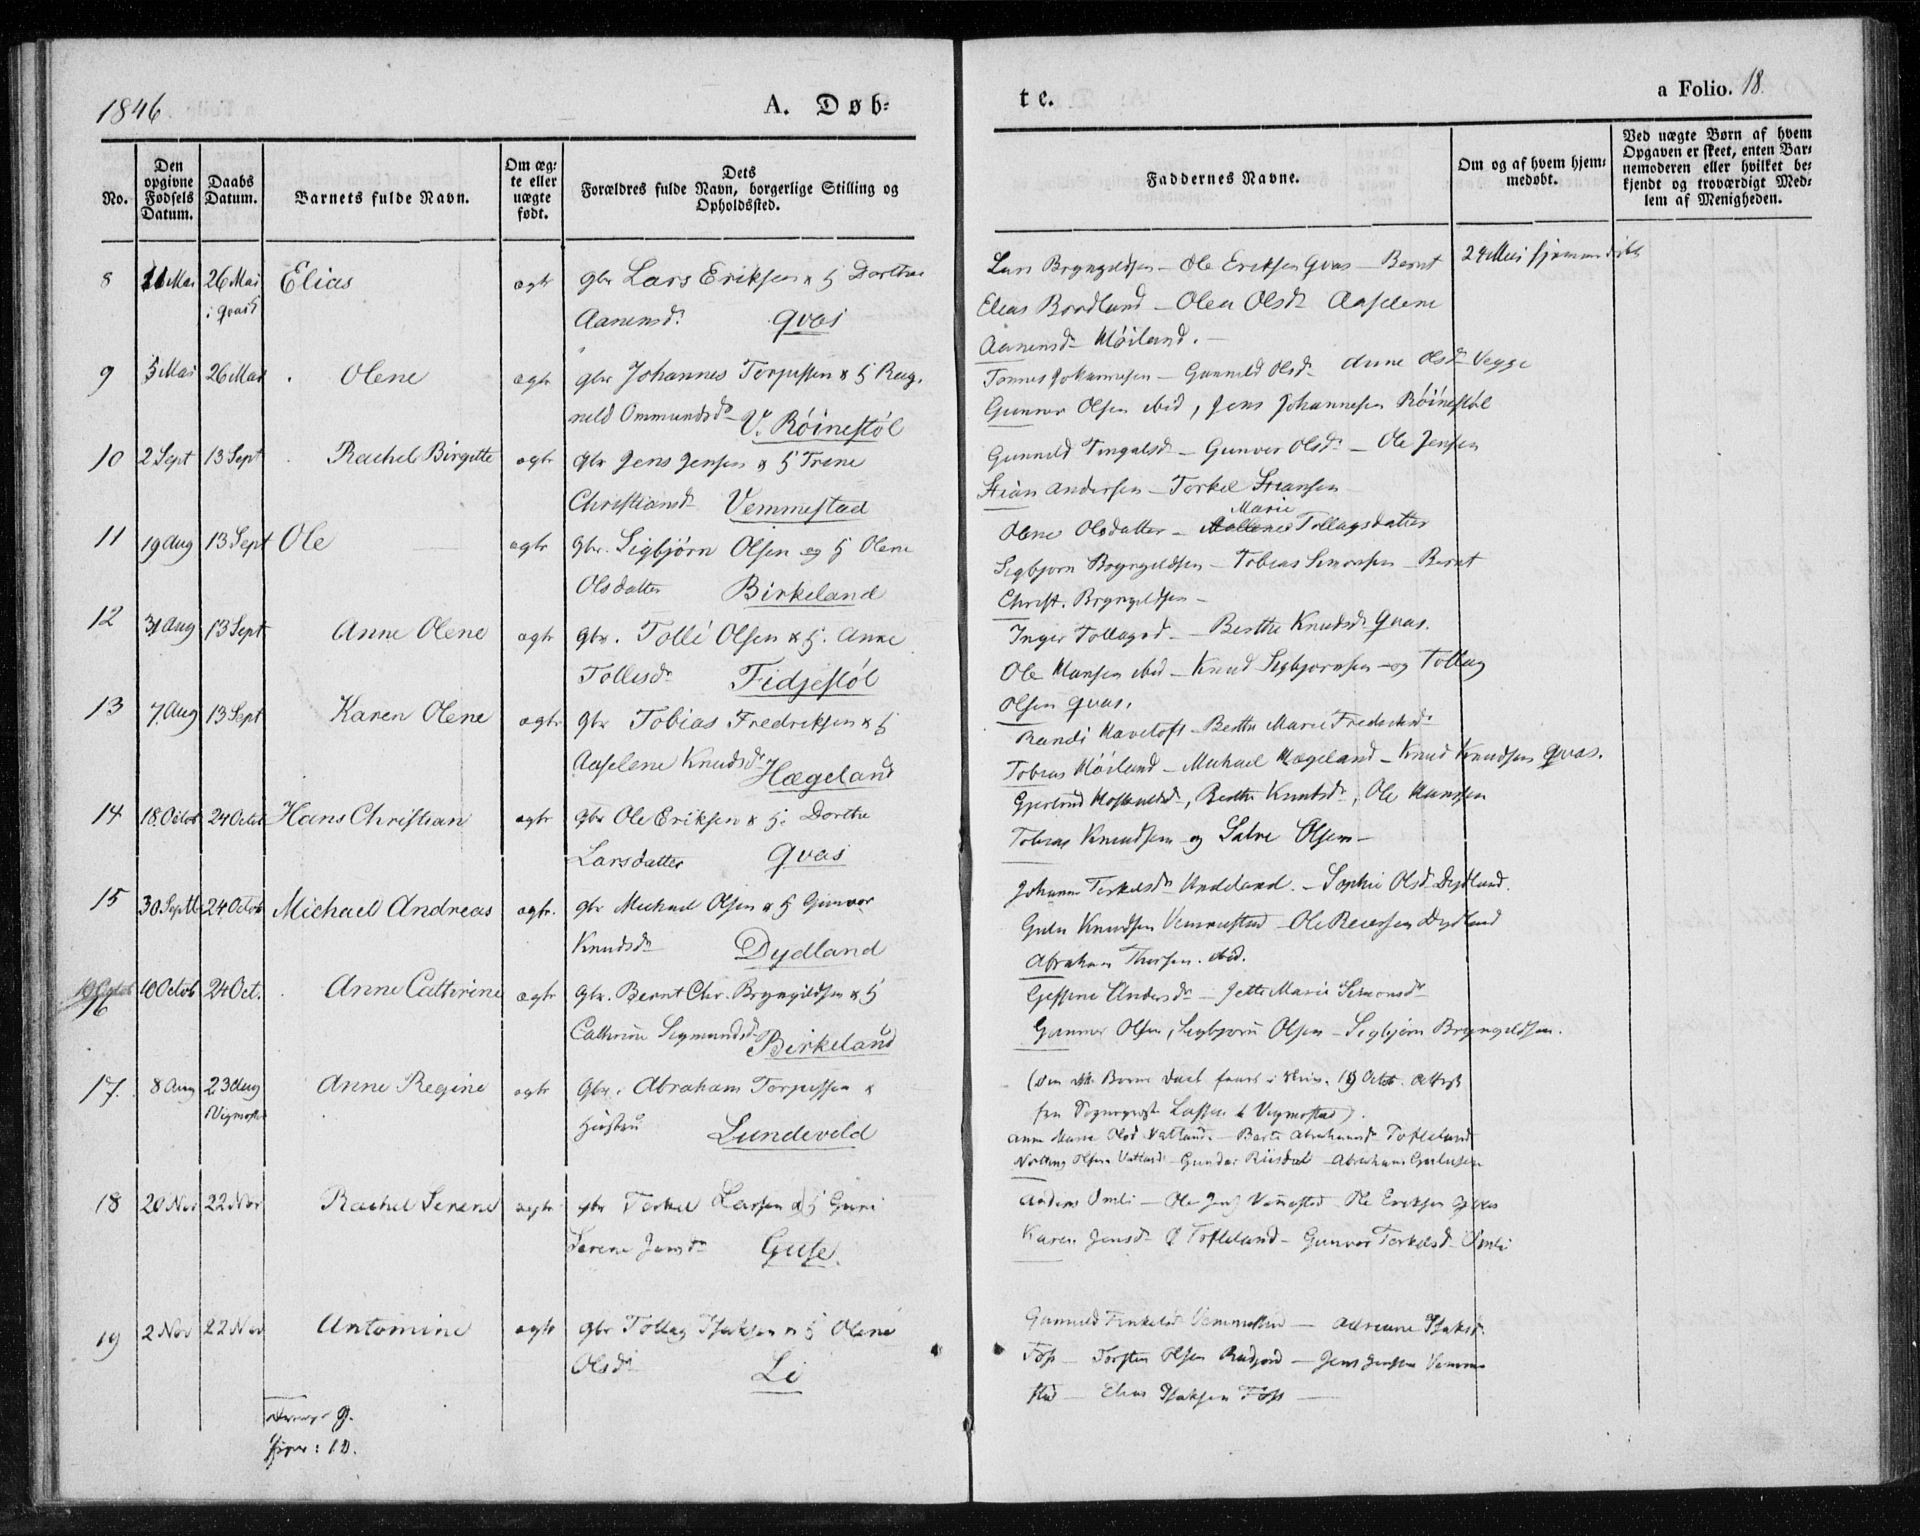 1846
A. Døb-
te.
a Folio. 18.
No.
Den opgivne Fødsels Datum.
Daabs Datum.
Barnets fulde Navn.
Om ægte eller uægte født.
Dets Forældres fulde Navn, borgerlige Stilling og Opholdssted.
Faddernes Navne.
Om og af hvem hjemmedøbt.
Ved uægte Børn af hvem Opgaven er skeet, enten Barnemoderen eller hvilket bekjendt og troværdigt Medlem af Menigheden.
8 11 Mai 26 Mai Elias ægte gbr Lars Eriksen & H Dorthe
i Qvas
Aanensd. Qvas
Lars Bryngeldsen - Ole Eriksen Qvas - Bernt 24 Mai hjemmedøbt
Elias Bordland - Olea Olsd Aaselene
Aanensd Møiland. -
9 5 Mai 26 Mai Olene ægte gbr Johannes Torjussen & H Rag-
neld Ommundsd V. Röinestöl
Tonnes Johannesen - Gunneld Olsd Anne Olsd Vegge
Gunner Olsen ibid, Jens Johannesen Röinestöl
10 2 Sept 13 Sept Rachel Birgitte ægte gbr Jens Jensen & H Trene
Christiansd Vemmestad
Gunneld Tingalsd - Gunvor Olsd - Ole Jensen
Stian Andersen - Torkel Stiansen
11 19 Aug 13 Sept Ole ægte gbr. Sigbjørn Olsen og H Olene
Olsdatter Birkeland
Marie
Olene Olsdatter - Tollagsdatter
Sigbjørn Bryngeldsen - Tobias Simonsen - Bernt
Christ. Bryngeldsen -
12 31 Aug 13 Sept Anne Olene ægte gbr. Tolli Olsen & H. Anne
Tollisd Fidjestöl
Inger Tollagsd - Berthe Knudsd Qvas.
Ole Hansen ibid - Knud Sigbjørnsen - og Tollag
Olsen Qvas.
13 7 Aug 13 Sept Karen Olene ægte gbr Tobias Fredriksen & H
Aaselene Knudsd Hægeland
Randi Haveloft - Berthe Marie Fredriksd
Tobias Møiland - Michael Hægeland - Knud Knudsen Qvas.
14 18 Octob 24 Octob Hans Christian ægte gbr Ole Eriksen & H. Dorthe
Larsdatter Qvas
Gjertrud, Berthe Knutsd, Ole Hansen
Tobias Knudsen og Salve Olsen -
15 30 Septb 24 Octob Michael Andreas ægte. gbr Michael Olsen & H Gunvor
Knudsd Dydland
Johanne Terkelsd Undeland. - Sophie Olsd Dydland.
Gulu Knudsen Vemmestad - Ole Reiersen Dydland
Abraham Thorsen. ibid.
16 10 Octob 24 Oct. Anne Cathrine ægte gbr. Bernt Chr. Bryngildsen & H
Cathrine Sigmundsd Birkeland
Gessine Andersd - Jette Marie Simonsd
Gunner Olsen, Sigbjørn Olsen - Sigbjørn Bryngeldsen.
17. 8 Aug 23 Aug Anne Regine ægte gbr. Abraham Torjussen &
Vigmostad
Hustru Lundevold
19 Octob. Attest
fra Sogneprest Lassen i Vigmostad).
Anne Marie Olsd Vatland - Berte Abrahamsd Tofteland
Olsen Vatland - Gunder Riisdal - Abraham Gulusen
18 20 Nov 22 Nov Rachel Serene ægte gbr Terkel Larsen & H Guri
Serene Jensd Guse.
Anders Omli - Ole Jens Vemestad - Ole Eriksen Qvas
Karen Jensd Ø Tofteland - Gunvor Terkelsd Omli
19 2 Nov 22 Nov Antomine ægte gbr Tollag Isaksen & H Olene
Olsd Li
Gunneld Vemmestad - Adriane Isaksd
Foss - Torsten Olsen Rudjord - Jens Jensen Vemme-
stad - Elias Isaksen Foss -
Drenge 9.
Piger: 10.